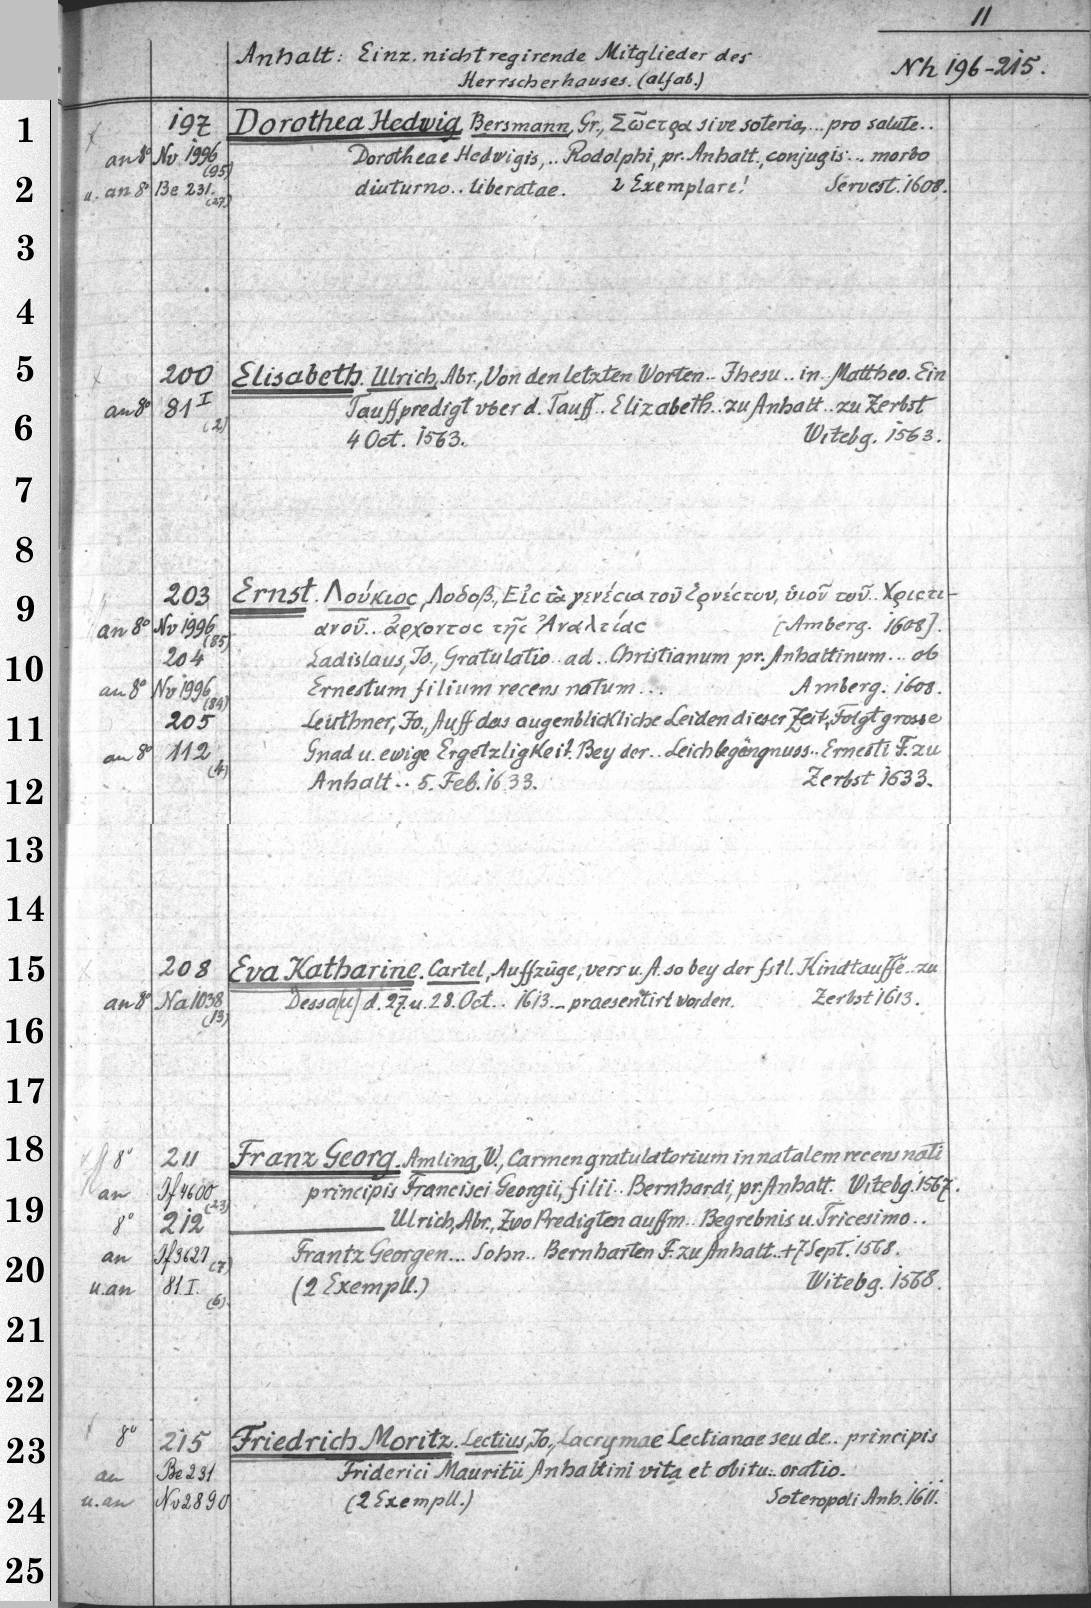 11
Anhalt: Einz. nichtregirende Mitglieder des
Herrscherhauses. (alfab.)
Nh 196-215.
1
197 Dorothea Hedwig Bersmann, Gr., Σῶστρα sive soteria,... pro salute..
an 8° Nv 1996 (95) Dorotheae Hedwigis,.. Rodolphi, pr. Anhalt., conjugis... morbo
2
u. an 8° Be 231. (27.) diuturno.. liberatae. 2 Exemplare! Servest. 1608.
3
4
5
200 Elisabeth. Ulrich, Abr., Von den letzten Worten.. Jhesu.. in Mattheo. Ein
an 8° 81 I (2) Tauffpredigt vber d. Tauff.. Elizabeth.. zu Anhalt.. zu Zerbst
6
4 Oct. 1563. Witebg. 1563.
7
8
9
203 Ernst. Λούκιος, Λοδοβ., Εἰς τὰ γενέσια τοῦ Ἐρνέστου, ὑιοῦ τοῦ.. Χριστι-
an 8° Nv 1996 (85) ανοῦ.. ἀρχοντος τῆς Ἀναλτίας [Amberg. 1608].
10
204 Ladislaus, Jo., Gratulatio.. ad.. Christianum pr. Anhaltinum... ob
an 8° Nv 1996 (84) Ernestum filium recens natum... Amberg. 1608.
11
205 Leuthner, Jo., Auff das augenblickliche Leiden dieser Zeit, Folgt grosse
an 8° 112 (4) Gnad u. ewige Ergetzligkeit. Bey der.. Leichbegängnuss.. Ernesti F. zu
12
Anhalt.. 5. Feb. 1633. Zerbst 1633.
13
14
15
208 Eva Katharine. Cartel, Auffzüge, vers u. A. so bey der fstl. Kindtauffe.. zu
an 8° Na 1038 (13) Dessa[u] d. 27. u. 28. Oct.. 1613.. praesentirt worden. Zerbst 1613.
16
17
18
8° 211 Franz Georg. Amling, W., Carmen gratulatorium in natalem recens nati
an Pf 4600 (23) principis Francisci Georgii, filii.. Bernhardi, pr. Anhalt. Witebg. 1567.
19
8° 212 ——— Ulrich, Abr., Zwo Predigten auffm.. Begrebnis u. Tricesimo..
an Pf 3627 (7) Frantz Georgen... Sohn.. Bernharten F. zu Anhalt.. +7 Sept. 1568.
20
u. an 81 I. (6) (2 Exempll.) Witebg. 1568.
21
22
23
8° 215 Friedrich Moritz. Lectius, Jo., Lacrymae Lectianae seu de.. principis
an Be 231 Friderici Mauritii Anhaltini vita et obitu.. oratio.
24
u. an Nv 2890 (2 Exempll.) Soteropoli Anh. 1611.
25